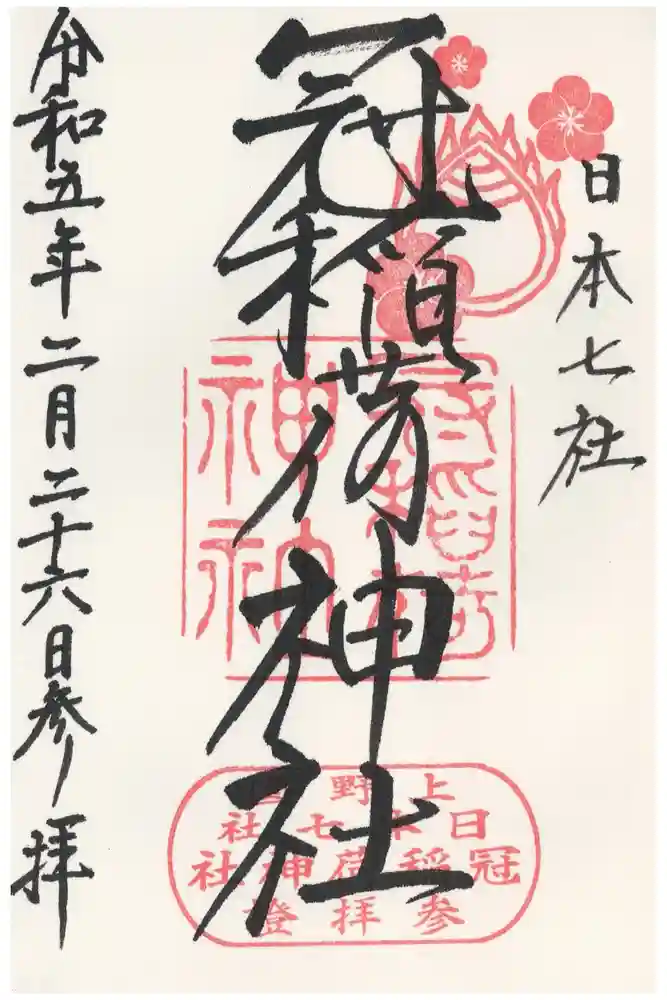 日本七社
冠稲荷神社
冠稲荷
神社
上野国
日本七社
冠稲荷神社
参拝證
令和五年二月二十六日参拝